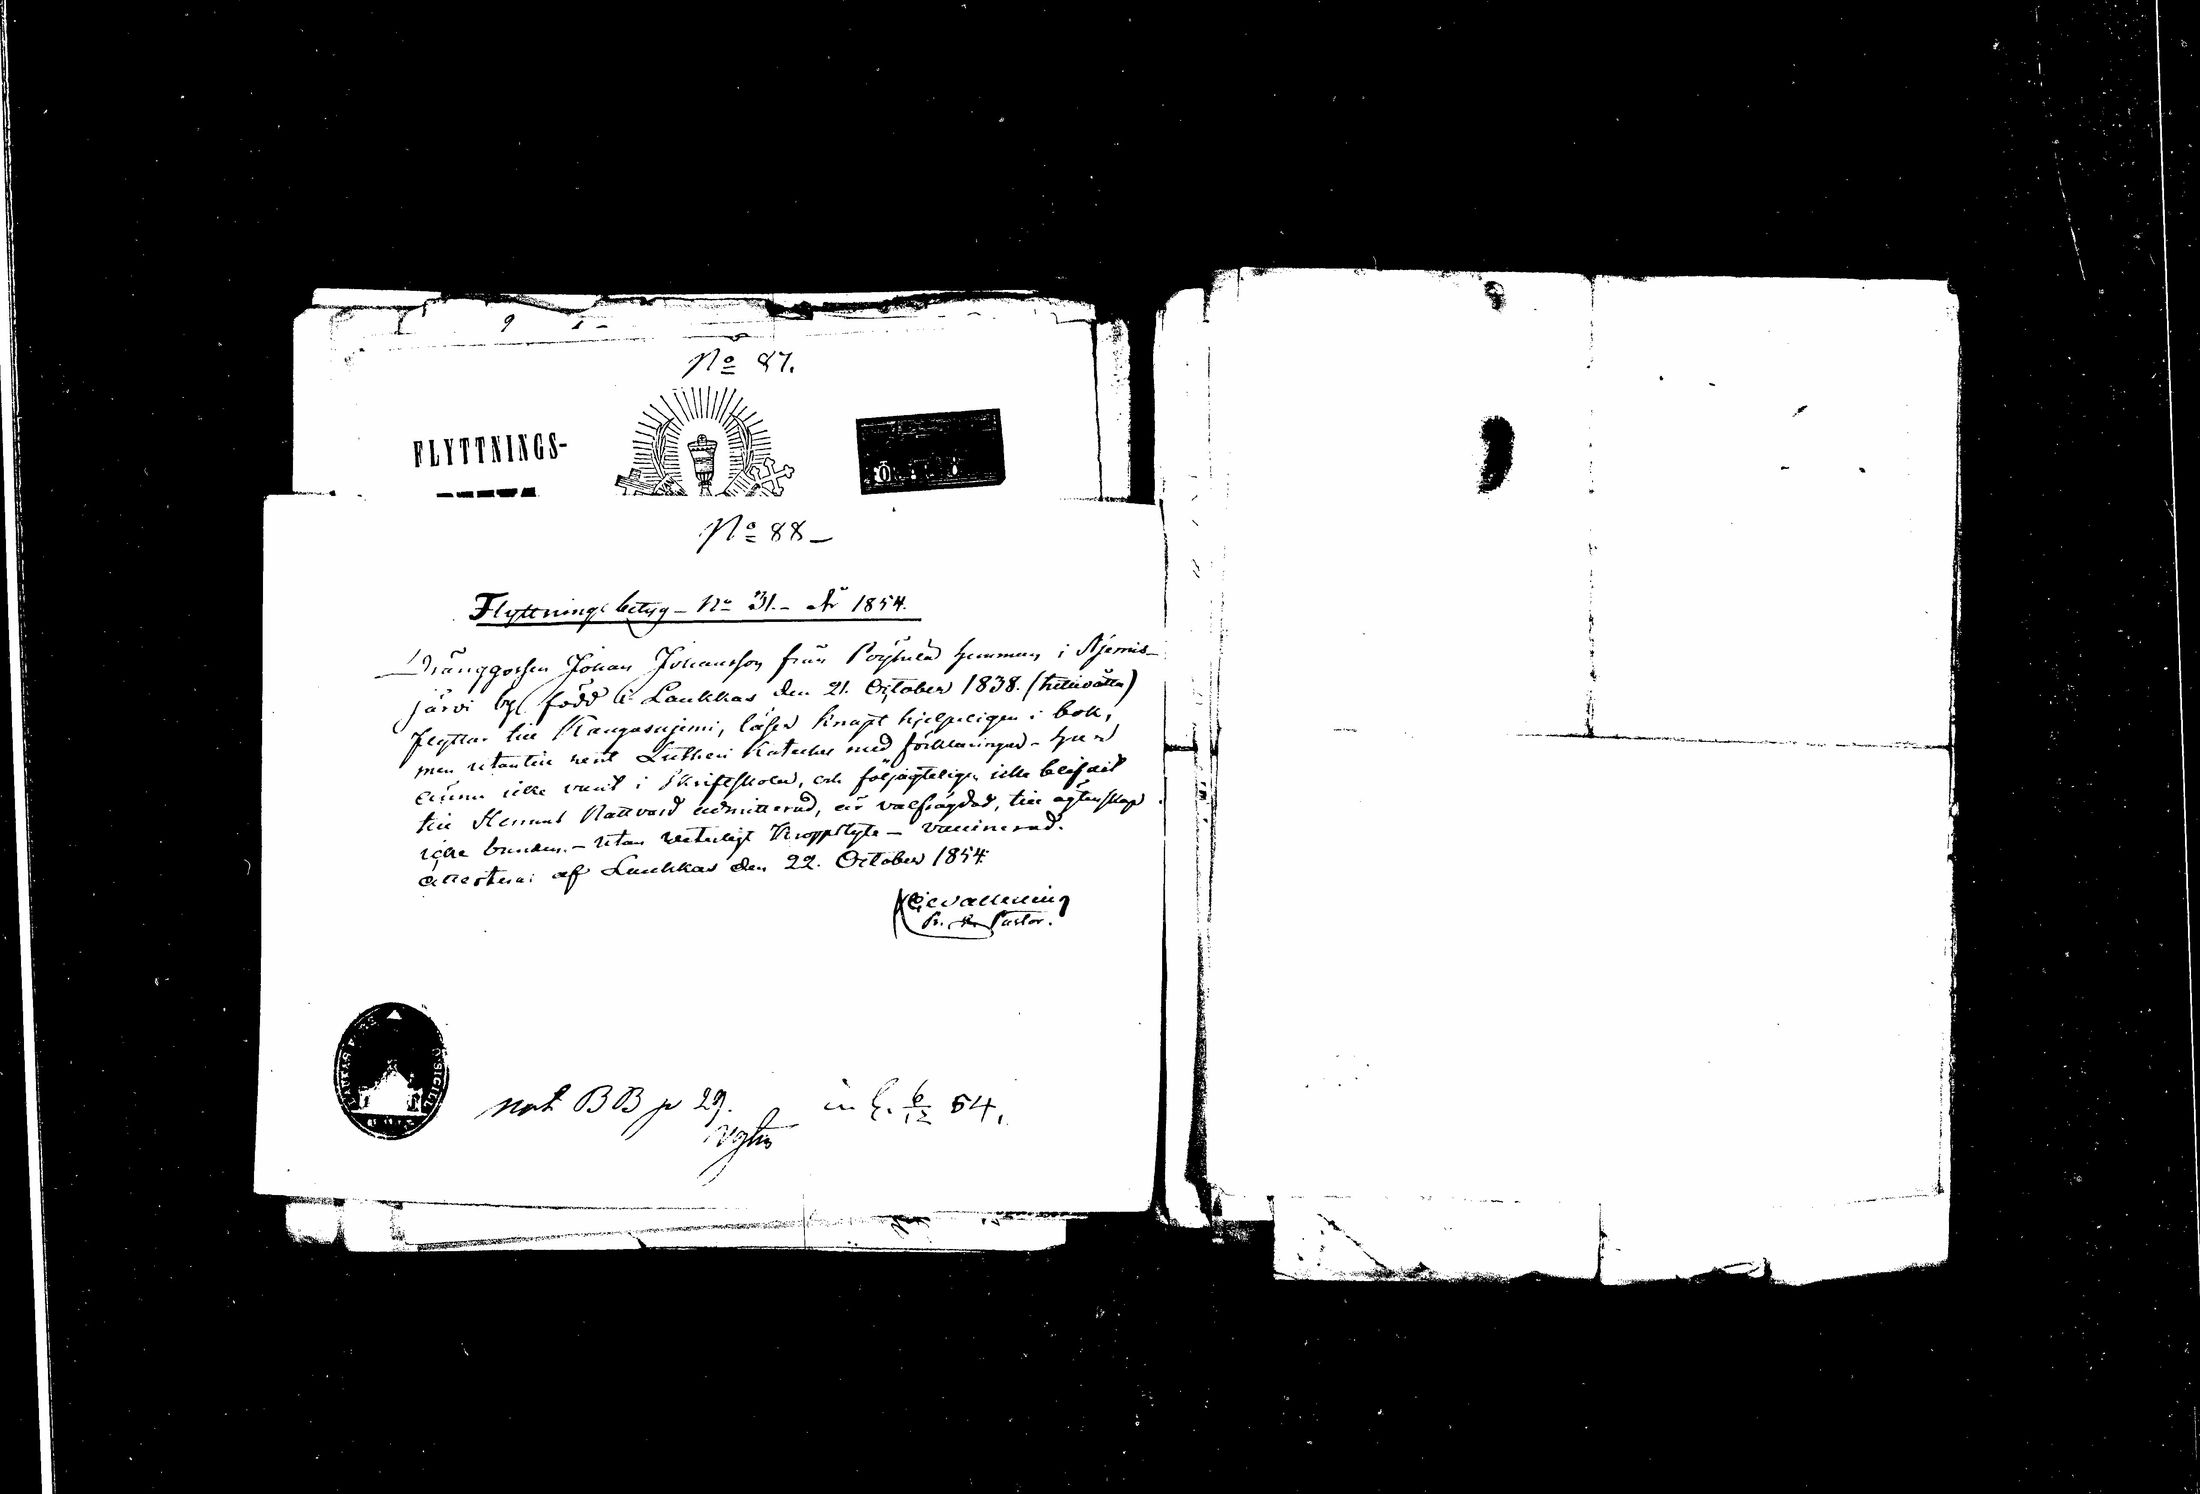 No 87.
FLYTTNINGS-
No 88 –
Flyttningsbetyg – No 31. – År 1854.
Dränggossen Johan Johansson från hemman i Äijemis-
järvi by, född i Laukkas den 21. October 1838.
flyttar till Kangasniemi, läser knapt hjelpeligen i bok,
men utantill rent Lutheri Kateches med förklaringar –
ännu icke varit i Skriftskola, och följagteligen icke blifvit
till Herrans Nattvard admitterad, är välfrägdad, till ägtenskap
icke bunden. – utan veterligt kroppslyte – vaccinerad.
attesterar af Laukkas den 22. October 1854.
Pastor.
LAUKAS SIGILL
not BB p 29. in l. 6/12 54.